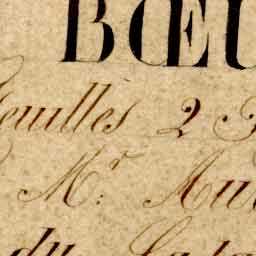 BŒU
feuilles 2 3
Mr. Au
du